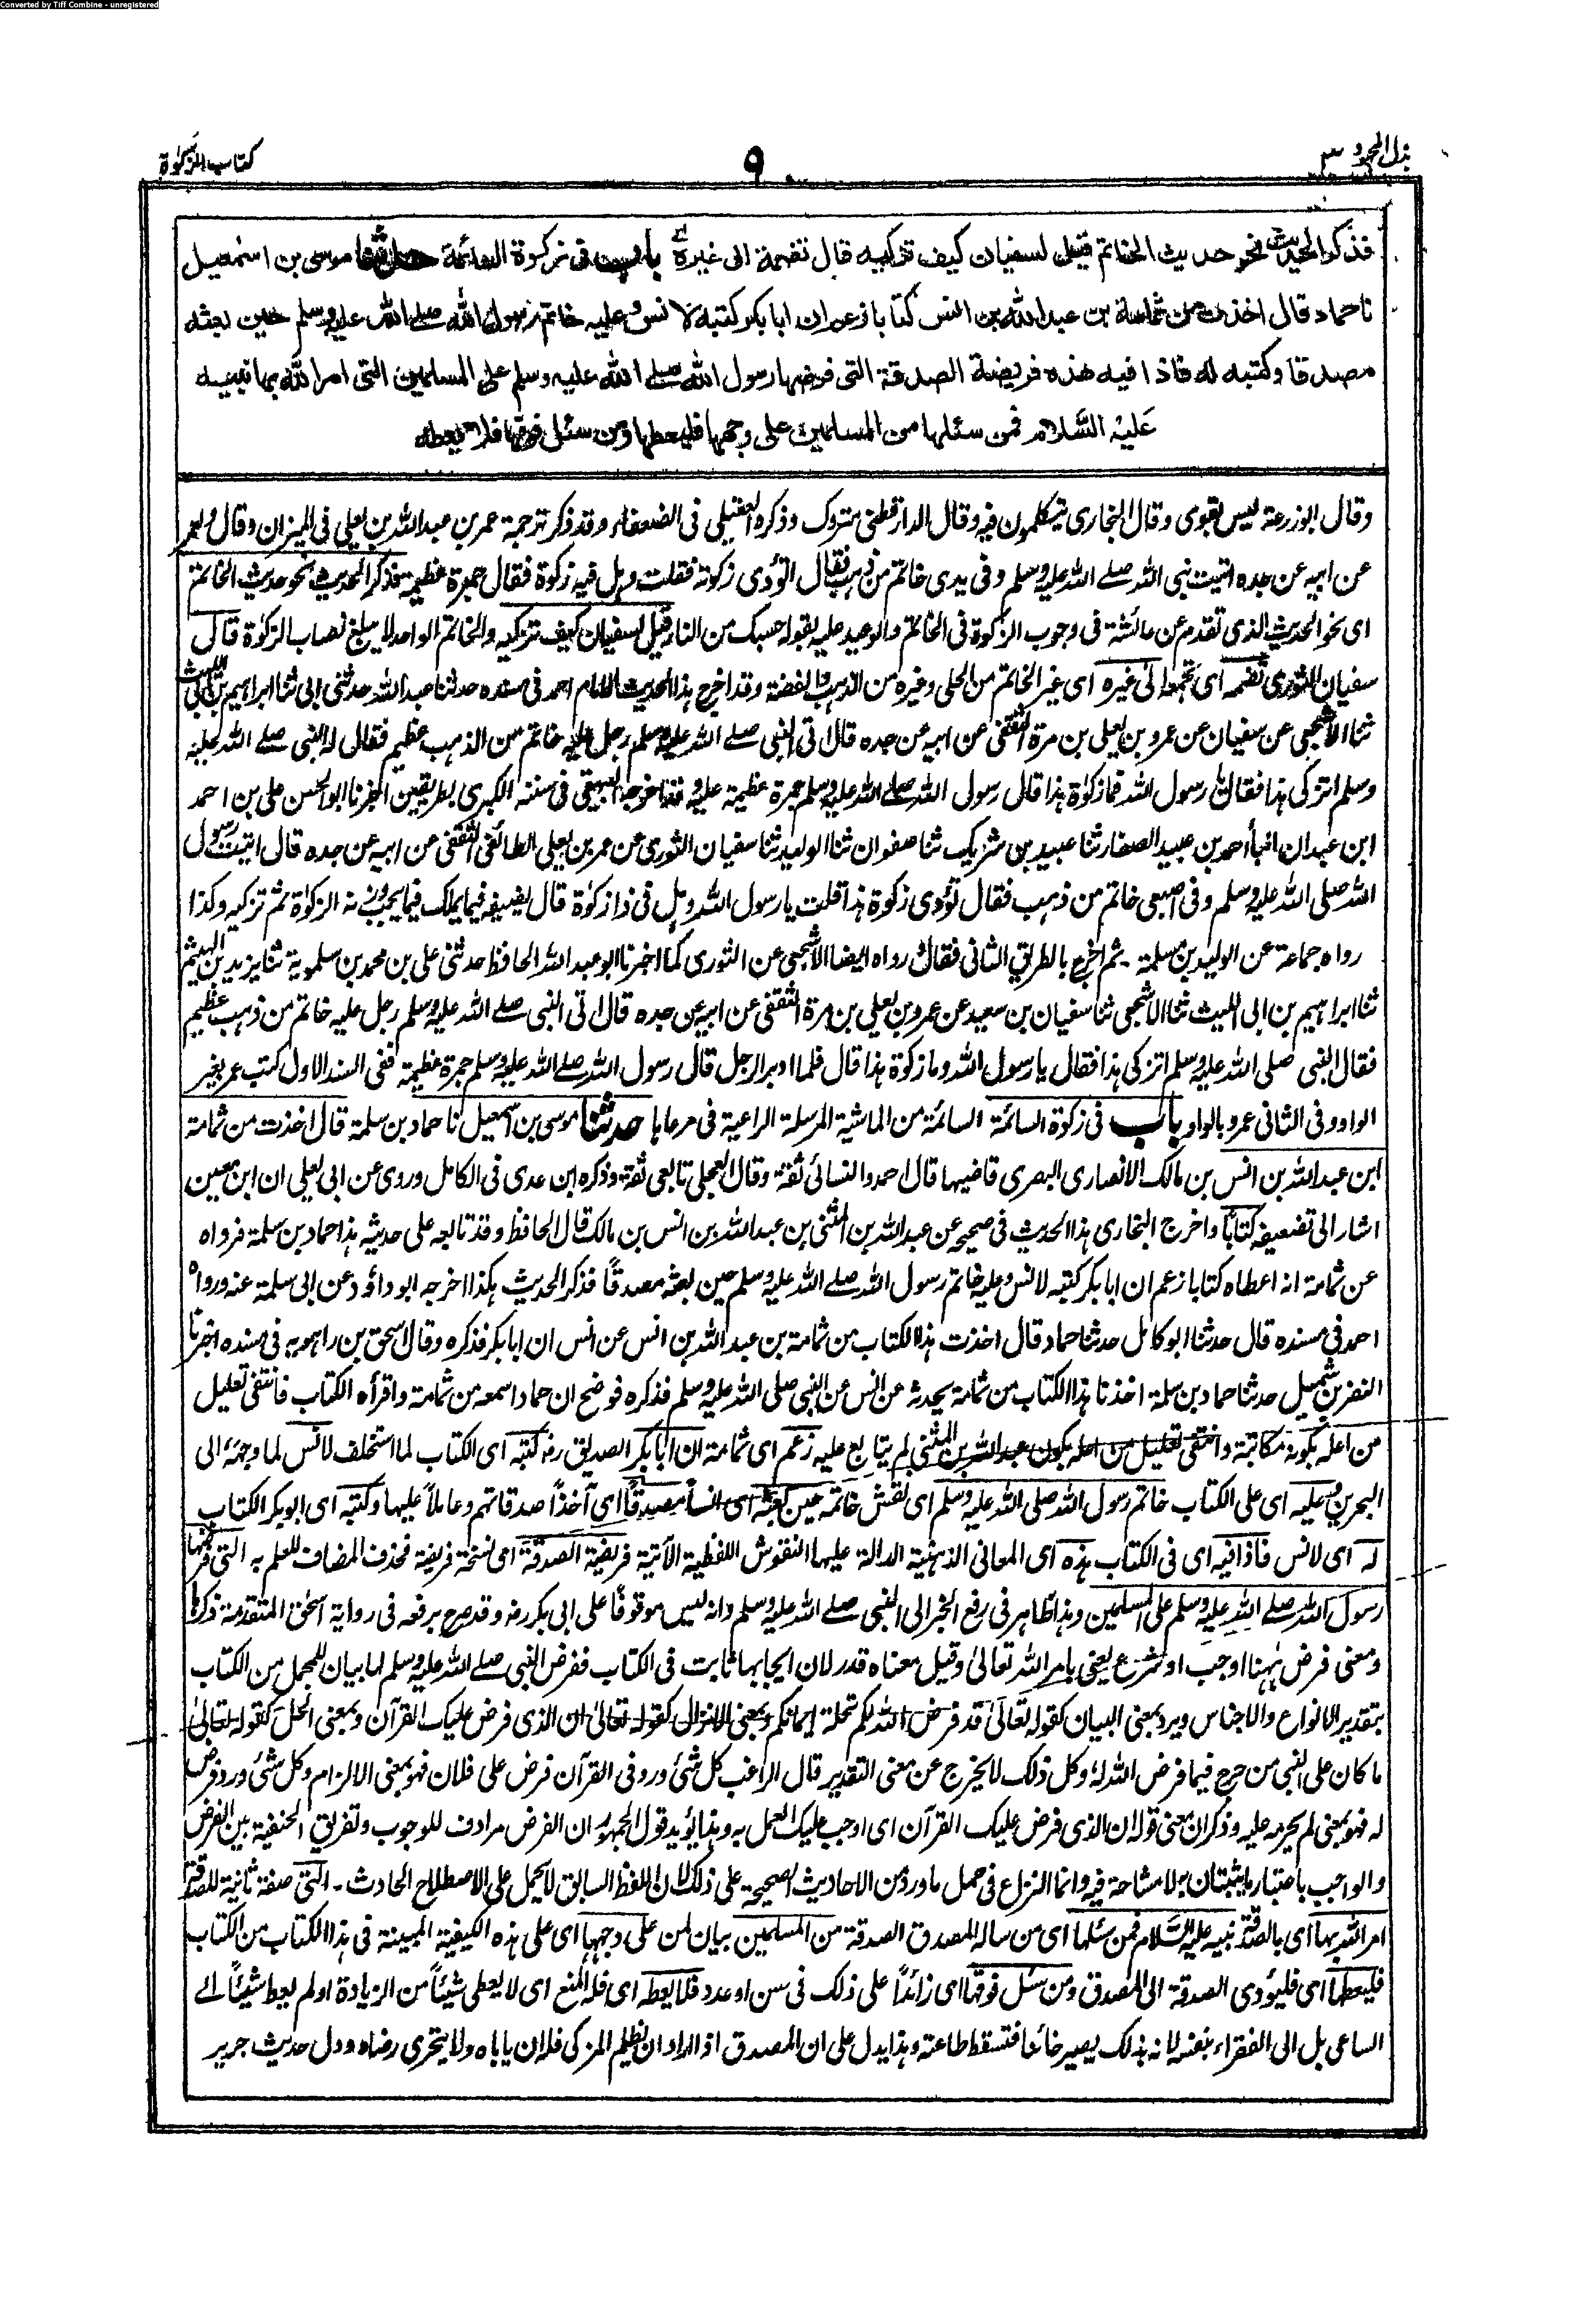 Converted by Tiff Combine - unregistered
بذل المجهود ٣
٩
كتاب الزكوة
فذكر الحديث نحو حديث الخاتم قيل لسفيان كيف تزكيه قال تضمه الى غيره باب فى زكوة السائمة حدثنا موسى بن اسمعيل
نا حماد قال اخذت من ثمامة بن عبد الله بن انس كتابا زعم ان ابا بكر كتبه لانس وعليه خاتم رسول الله صلے الله عليه وسلم حين بعثه
مصدقا وكتبه له فاذا فيه هذه فريضة الصدقة التى فرضها رسول الله صلے الله عليه وسلم على المسلمين التى امر الله بها نبيه
عليه السلام فمن سئلها من المسلمين على وجهها فليعطها ومن سئل فوقها فلا يعطه
وقال ابوزرعة ليس بقوى وقال البخارى يتكلمون فيه وقال الدارقطنى متروك وذكره العقيلى فى الضعفاء وقد ذكر ترجمة عمر بن عبد الله بن يعلى فى الميزان وقال وعمر
عن ابيه عن جده اتيت نبى الله صلے الله عليه وسلم وفى يدى خاتم من ذهب فقال اتؤدى زكوته فقلت وهل فيه زكوة فقال جمرة عظيمة فذكر الحديث نحو حديث الخاتم
اى نحو الحديث الذى تقدم عن عائشة فى وجوب الزكوة فى الخاتم والوعيد عليه بقوله حسبك من النار قيل لسفيان كيف تزكيه والخاتم الواحد لا يبلغ نصاب الزكوٰة قال
سفيان الثورى تضمه اى تجمعه الى غيره اى غير الخاتم من الحلى وغيره من الذهب والفضة وقد اخرج هذا الحديث الامام احمد فى مسنده حدثنا عبد الله حدثنى ابى ثنا ابراهيم بن ابى الليث
ثنا الاشجعى عن سفيان عن عمرو بن يعلى بن مرة الثقفى عن ابيه عن جده قال اتى النبى صلے الله عليه وسلم رجل عليه خاتم من الذهب عظيم فقال له النبى صلے الله عليه
وسلم اتزكى هذا فقال يا رسول الله فما زكوٰة هذا قال رسول الله صلے الله عليه وسلم جمرة عظيمة عليه وقد اخرجه البيهقى فى سننه الكبرى بطريقين اخبرنا ابو الحسن على بن احمد
ابن عبدان انبأ احمد بن عبيد الصفار ثنا عبيد بن شريك ثنا صفوان ثنا الوليد ثنا سفيان الثورى عن عمر بن يعلى الطائفى الثقفى عن ابيه عن جده قال اتيت رسول
الله صلى الله عليه وسلم وفى اصبعى خاتم من ذهب فقال تؤدى زكوة هذا قلت يا رسول الله وهل فى ذا زكوٰة قال يضيفه فيما يملك فيما يجب وزنه الزكوٰة ثم تزكيه وكذا
رواه جماعة عن الوليد بن مسلمة - ثم اخرج بالطريق الثانى فقال رواه ايضا الاشجعى عن الثورى كما اخبرنا ابو عبد الله الحافظ حدثنى على بن محمد بن سلمويه ثنا يزيد بن الهيثم
ثنا ابراهيم بن ابى الليث ثنا الاشجعى ثنا سفيان بن سعيد عن عمرو بن يعلى بن مرة الثقفى عن ابيه عن جده قال اتى النبى صلے الله عليه وسلم رجل عليه خاتم من ذهب عظيم
فقال النبى صلى الله عليه وسلم اتزكى هذا فقال يا رسول الله وما زكوة هذا قال فلما ادبر الرجل قال رسول الله صلے الله عليه وسلم جمرة عظيمة ففى السند الاول كتب عمر بغير
الواو وفى الثانى عمرو بالواو باب فى زكوة السائمة السائمة من الماشية المرسلة الراعية فى مرعاها حدثنا موسى بن اسمعيل نا حماد بن سلمة قال اخذت من ثمامة
ابن عبد الله بن انس بن مالك الانصارى البصرى قاضيها قال احمد والنسائى ثقة وقال العجلى تابعى ثقة وذكره ابن عدى فى الكامل وروى عن ابى يعلى ان ابن معين
اشار الى تضعيفه كتابا واخرج البخارى هذا الحديث فى صحيحه عن عبد الله بن المثنى بن عبد الله بن انس بن مالك قال الحافظ وقد تابعه على حديثه هذا حماد بن سلمة فرواه
عن ثمامة انه اعطاه كتابا زعم ان ابا بكر كتبه لانس وعليه خاتم رسول الله صلے الله عليه وسلم حين بعثه مصدقا فذكر الحديث هكذا اخرجه ابو داؤد عن ابى سلمة عنه ورواه
احمد فى مسنده قال حدثنا ابو كامل حدثنا حماد قال اخذت هذا الكتاب من ثمامة بن عبد الله بن انس عن انس ان ابا بكر فذكره وقال اسحق بن راهويه فى مسنده اخبرنا
النضر بن شميل حدثنا حماد بن سلمة اخذنا هذا الكتاب من ثمامة يحدثه عن انس عن النبى صلى الله عليه وسلم فذكره فوضح ان حمادا سمعه من ثمامة واقرأه الكتاب فانتفى تعليل
من اعله بكونه مكاتبة وانتفى تعليل من اعله بكون عبد الله بن المثنى لم يتابع عليه زعم اى ثمامة ان ابا بكر الصديق رضـ كتبه اى الكتاب لما استخلف لانس لما وجهه الى
البحرين وعليه اى على الكتاب خاتم رسول الله صلى الله عليه وسلم اى نقش خاتمه حين بعثه اى انسا مصدقاً اى آخذا صدقاتهم وعاملاً عليها وكتبه اى ابو بكر الكتاب
له اى لانس فاذا فيه اى فى الكتاب هذه اى المعانى الذهنية الدالة عليها النقوش اللفظية الآتية فريضة الصدقة اى نسخة فريضة فحذف المضاف للعلم به التى فرضها
رسول الله صلے الله عليه وسلم على المسلمين وهذا ظاهر فى رفع الخبر الى النبى صلے الله عليه وسلم وانه ليس موقوفا على ابى بكر رضـ وقد صرح برفعه فى رواية اسحٰق المتقدمة ذكرها
ومعنى فرض هٰهنا اوجب او شرع يعنى بامر الله تعالىٰ وقيل معناه قدر لان ايجابها ثابت فى الكتاب ففرض النبى صلے الله عليه وسلم لها بيان للمجمل من الكتاب
بتقدير الانواع والاجناس ويرد بمعنى البيان كقوله تعالىٰ قد فرض الله لكم تحلة ايمانكم وبمعنى الانزال كقوله تعالىٰ ان الذى فرض عليك القرآن وبمعنى الحل كقوله تعالىٰ
ما كان على النبى من حرج فيما فرض الله له وكل ذلك لا يخرج عن معنى التقدير قال الراغب كل شئ ورد فى القرآن فرض على فلان فهو بمعنى الالزام وكل شئ ورد فرض
له فهو بمعنى لم يحرمه عليه وذكر ان معنى قوله ان الذى فرض عليك القرآن اى اوجب عليك العمل به وهذا يؤيد قول الجمهور ان الفرض مرادف للوجوب وتفريق الحنفية بين الفرض
والواجب باعتبار ما يثبتان به لا مشاحة فيه وانما النزاع فى حمل ما ورد من الاحاديث الصحيحة على ذلك لان اللفظ السابق لا يحمل على الاصطلاح الحادث - التى صفة ثانية للصدقة
امر الله بها اى بالصدقة نبيه عليه السلام فمن سئلها اى من ساله المصدق الصدقة من المسلمين بيان لمن على وجهها اى على هذه الكيفية المبينة فى هذا الكتاب من الكتاب
فليعطها اى فليؤدى الصدقة الى المصدق ومن سئل فوقها اى زائداً على ذلك فى سن او عدد فلا يعطه اى فله المنع اى لا يعطى شيئاً من الزيادة او لم يعط شيئاً الے
الساعى بل الى الفقراء بنفسه لانه بذلك يصير خائنا فتسقط طاعته وهذا يدل على ان المصدق اذا اراد ان يظلم المزكى فله ان ياباه ولا يتحرى رضاه ودل حديث جرير